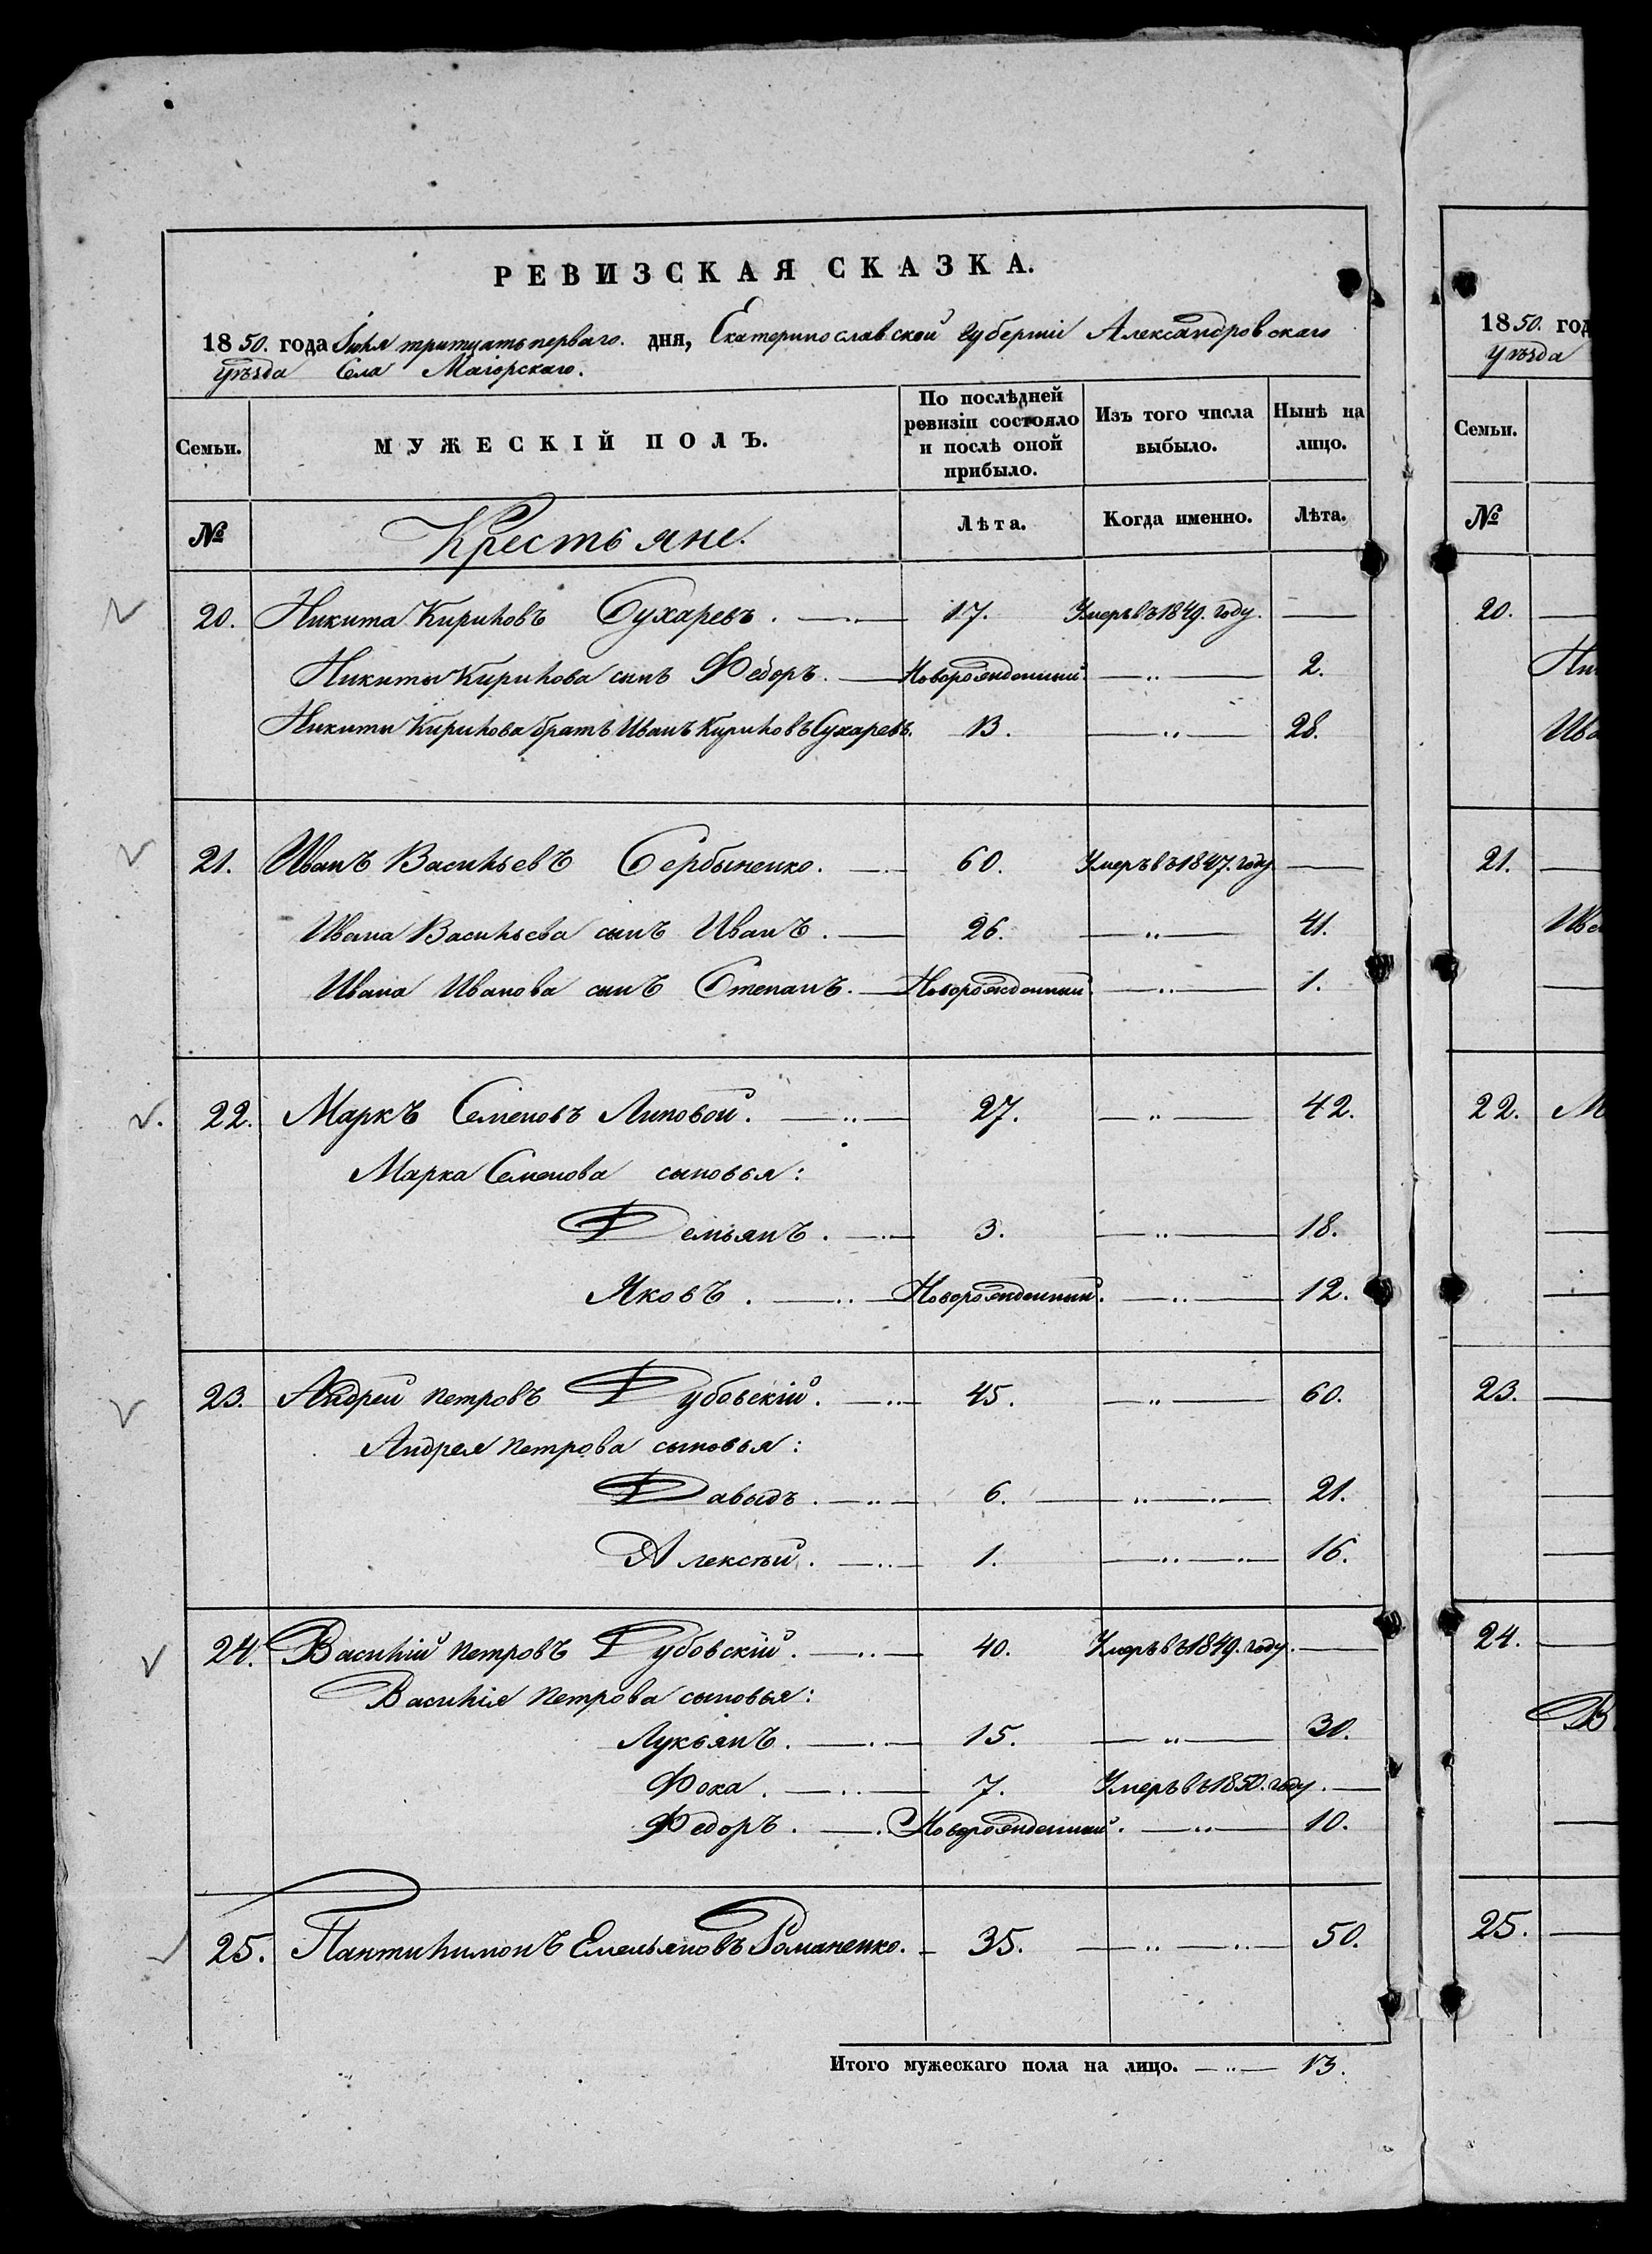 РЕВИЗСКАЯ СКАЗКА.
1850. года Іюля тритцать перваго. дня, Екатеринославской губерніи Александровскаго
уѣзда Села Маіорскаго.
Семьи. МУЖЕСКІЙ ПОЛЪ. По послѣдней ревизіи состояло и послѣ оной прибыло. Изъ того числа выбыло. Нынѣ на лицо.
№ Крестьяне. Лѣта. Когда именно. Лѣта.
20. Никита Кириловъ Сухаревъ. 17. Умеръ въ 1849. году.
Никиты Кирилова сынъ Федоръ. Новорожденный. 2.
Никиты Кирилова братъ Иванъ Кириловъ Сухаревъ. 13. 28.
21. Иванъ Васильевъ Сербыненко. 60. Умеръ въ 1847. году.
Ивана Васильева сынъ Иванъ. 26. 41.
Ивана Иванова сынъ Степанъ. Новорожденный. 1.
22. Маркъ Семеновъ Липовой. 27. 42.
Марка Семенова сыновья:
Демьянъ. 3. 18.
Яковъ. Новорожденный. 12.
23. Андрей Петровъ Дубовскій. 45. 60.
Андрея Петрова сыновья:
Давыдъ. 6. 21.
Алексѣй. 1. 16.
24. Василій Петровъ Дубовскій. 40. Умеръ въ 1849. году.
Василія Петрова сыновья:
Лукьянъ. 15. 30.
Фока. 7. Умеръ въ 1850. году.
Федоръ. Новорожденный. 10.
25. Пантилимонъ Емельяновъ Романенко. 35. 50.
Итого мужескаго пола на лицо. 13.
1850. год
уѣзда
Семьи.
№
20.
21.
22. М
23.
24.
В
25.